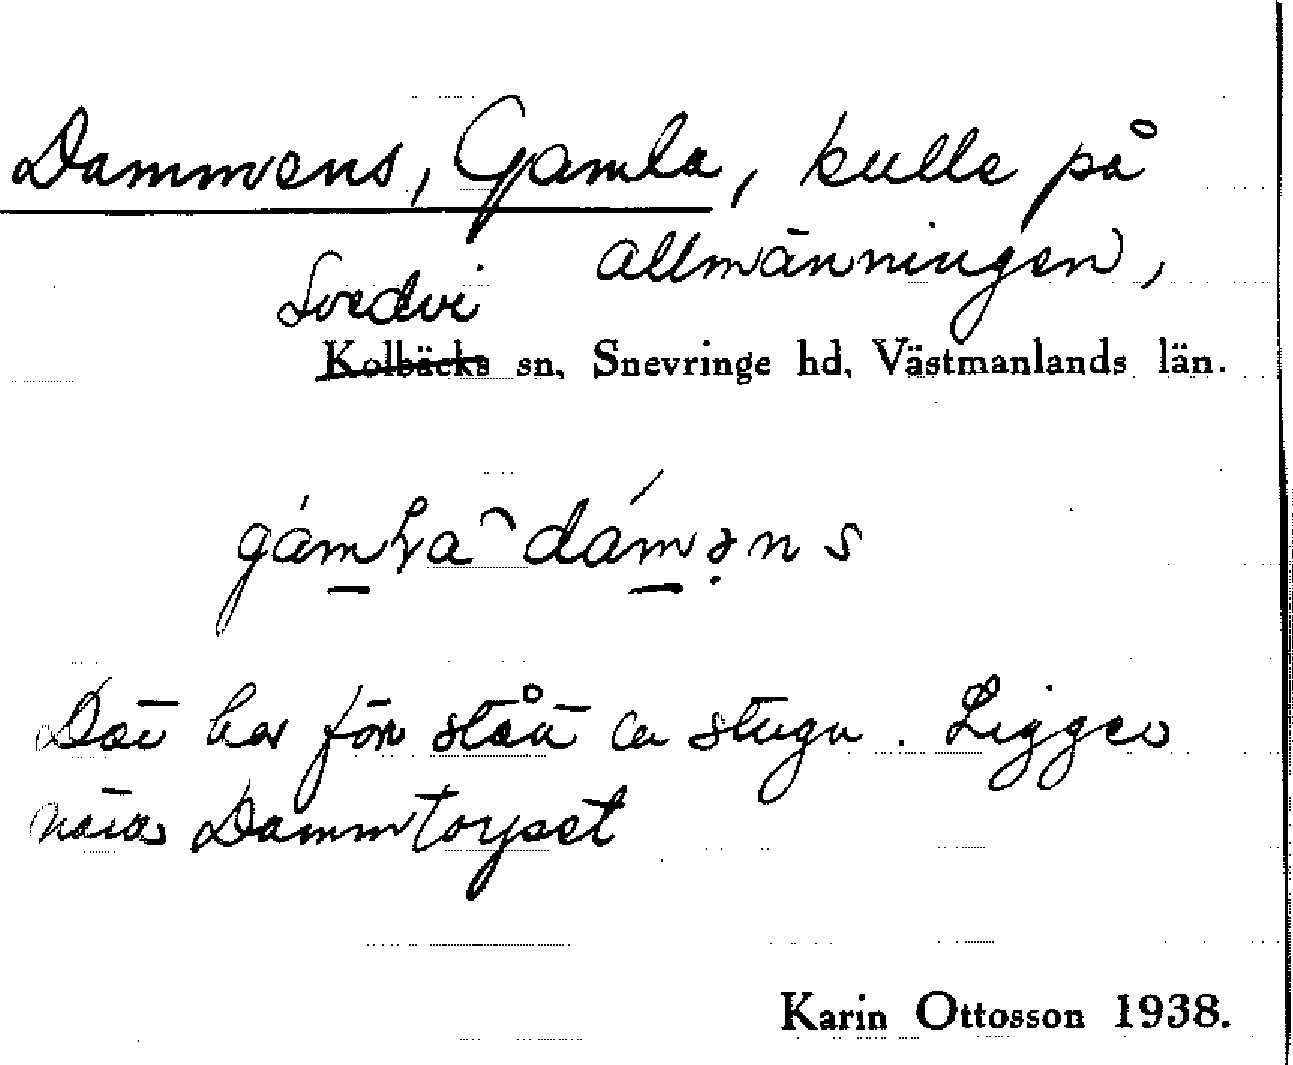 Dammens, Gamla, kulle på
allmänningen,
Svedvi
Kolbäcks sn, Snevringe hd, Västmanlands län.
gámḷa dáməns
Där har förr stått en stuga. Ligger
nära Dammtorpet
Karin Ottosson 1938.